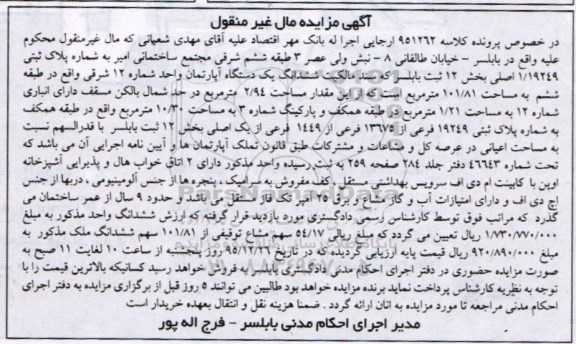 آگهی مزایده مال غیر منقول
در خصوص پرونده کلاسه ۹۵۱۲۶۲ ارجایی اجرا له بانک مهر اقتصاد علیه آقای مهدی شعبانی که مال غیرمنقول محکوم
علیه واقع در بابلسر - خیابان طالقانی ۸ - نبش ولی عصر ۳ طبقه ششم شرقی مجتمع ساختمانی امیر به شماره پلاک ثبتی
۱/۱۹۲۴۹ اصلی بخش ۱۲ ثبت بابلسر که سند مالکیت ششدانگ یک دستگاه آپارتمان واحد شماره ۱۲ شرقی واقع در طبقه
ششم به مساحت ۱۰۱/۸۱ مترمربع است که از این مقدار مساحت ۲/۹۴ مترمربع در حد شمال بالکن مسقف دارای انباری
شماره ۱۲ به مساحت ۱/۲۱ مترمربع در طبقه همکف و پارکینگ شماره ۳ به مساحت ۱۰/۳۰ مترمربع واقع در طبقه همکف
به شماره پلاک ثبتی ۱۹۲۴۹ فرعی از ۱۳۶۷۵ فرعی از ۱۴۴۹ فرعی از یک اصلی بخش ۱۲ ثبت بابلسر با قدرالسهم نسبت
به مساحت اعیانی در عرصه کل و مشاعات و مشترکات طبق قانون تملک آپارتمان ها و آیین نامه اجرایی آن می باشد که
تحت شماره ۴۶۶۴۳ دفتر جلد ۲۸۴ صفحه ۲۵۹ به ثبت رسیده واحد مذکور دارای ۲ اتاق خواب هال و پذیرایی آشپزخانه
اوپن با کابینت ام دی اف سرویس بهداشتی مستقل، کف مفروش به سرامیک، پنجره ها از جنس آلومینیومی، دربها از جنس
اچ دی اف و دارای امتیازات آب و گاز مشاع و برق ۲۵ آمپر تک فاز مستقل می باشد و حدود ۹ سال از عمر ساختمان می
گذرد که مراتب فوق توسط کارشناس رسمی دادگستری مورد بازدید قرار گرفته که ارزش ششدانگ واحد مذکور به مبلغ
۱/۷۳۰/۷۷۰/۰۰۰ ریال تعیین می گردد که مبلغ ریالی ۵۴/۱۷ سهم مشاع توقیفی از ۱۰۱/۸۱ سهم ششدانگ ملک مذکور به
مبلغ ۹۲۰/۸۹۰/۰۰۰ ریال قیمت پایه ارزیابی گردیده که در تاریخ ۹۵/۱۲/۲۲ روز یکشنبه از ساعت ۱۰ لغایت ۱۱ صبح به
صورت مزایده حضوری در دفتر اجرای احکام مدنی دادگستری بابلسر به فروش خواهد رسید کسانیکه بالاترین قیمت را با
توجه به نظریه کارشناس پرداخت نماید برنده مزایده خواهد بود طالبین می توانند ۵ روز قبل از برگزاری مزایده به دفتر اجرای
احکام مدنی مراجعه تا مورد مزایده به آنان ارائه گردد . ضمنا هزینه نقل و انتقال بعهده خریدار است
مدیر اجرای احکام مدنی بابلسر - فرج اله پور